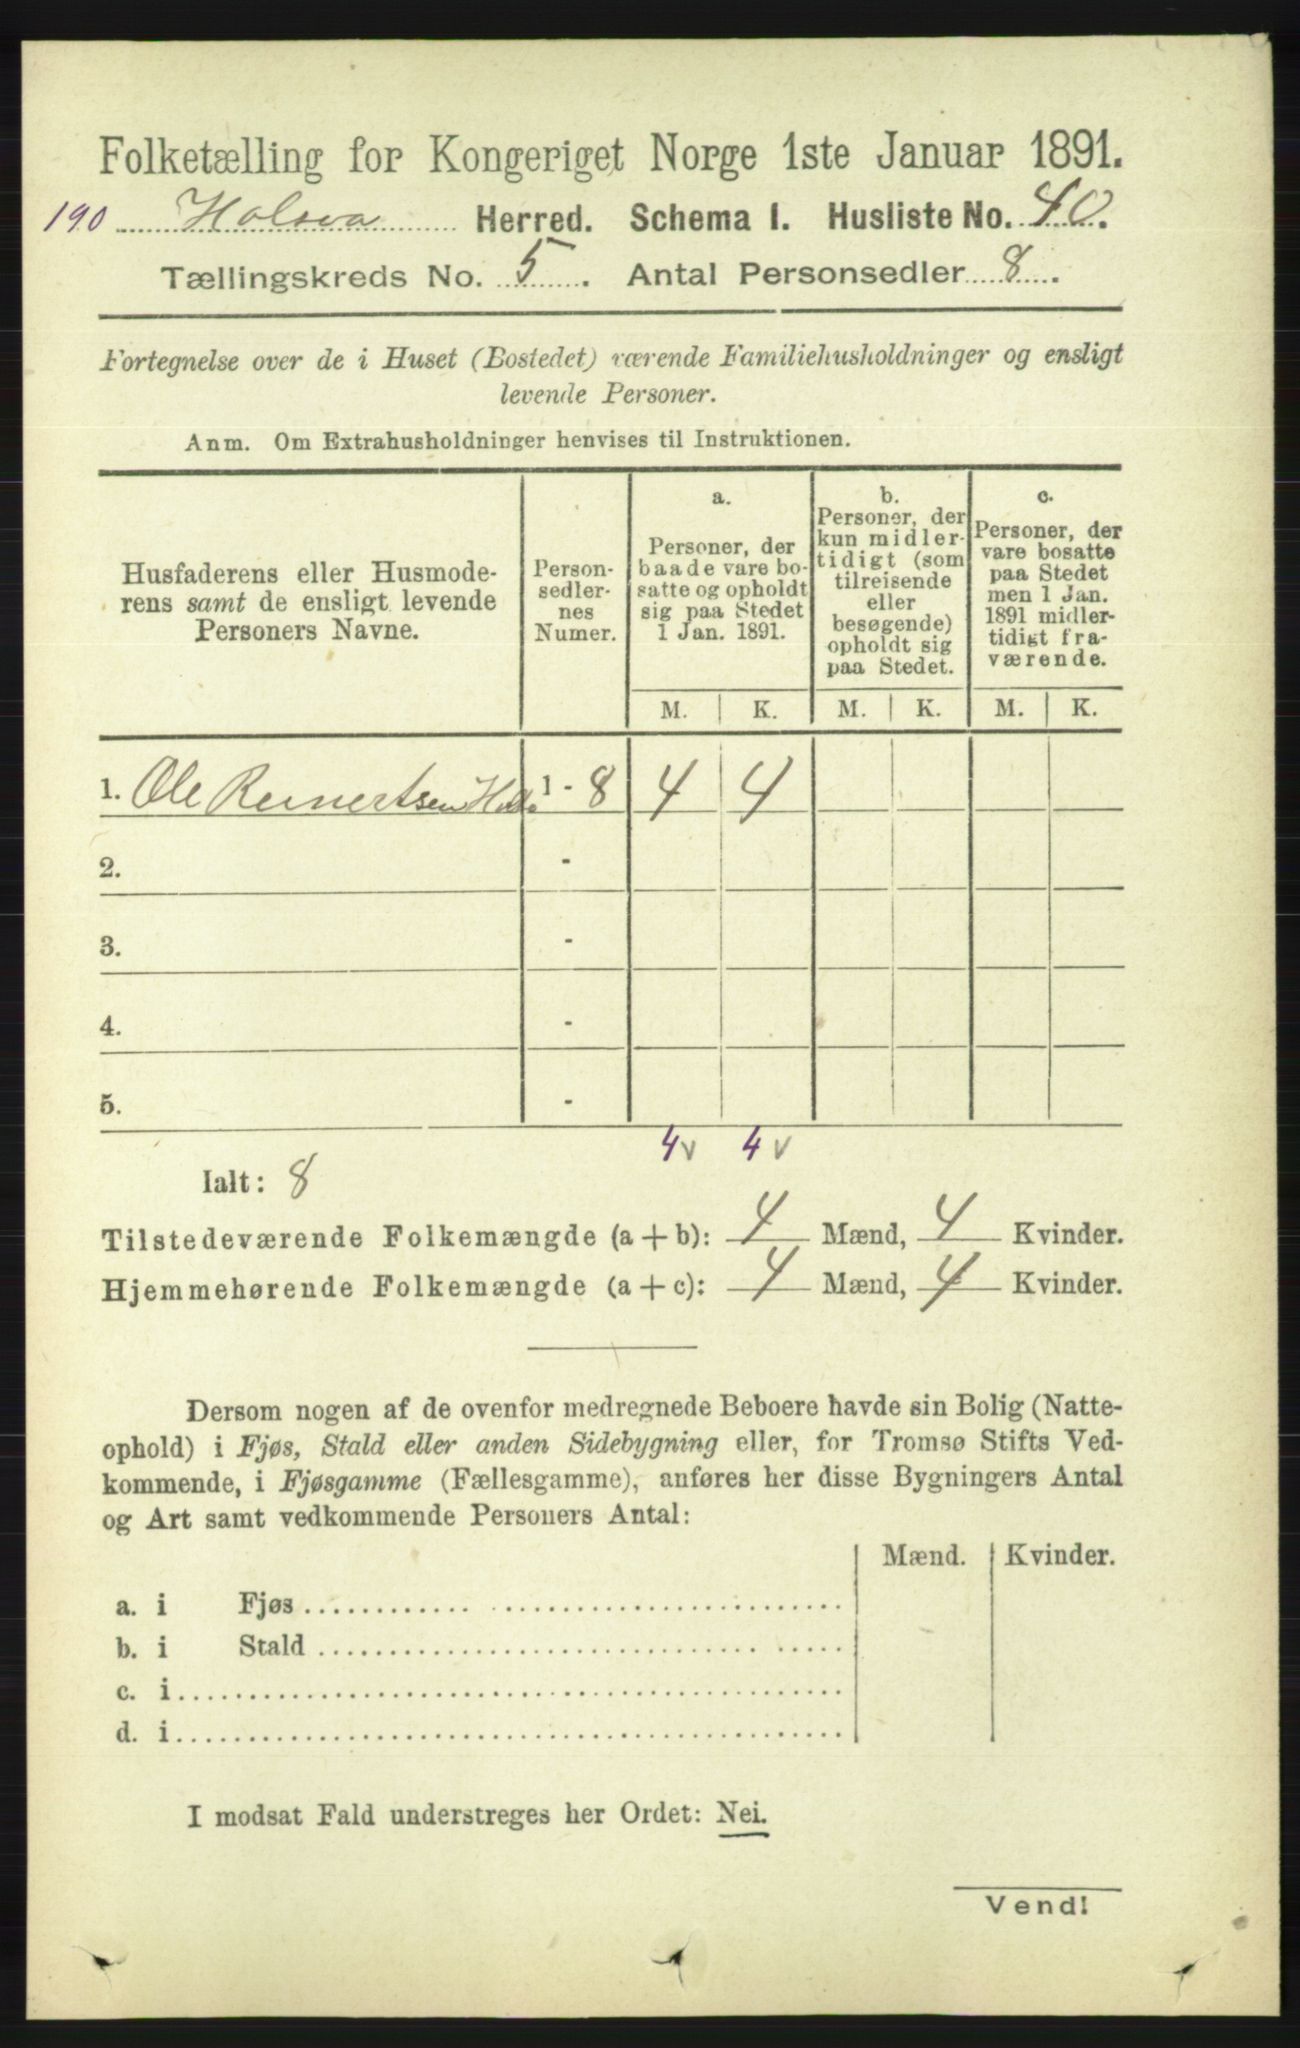 Folketælling for Kongeriget Norge 1ste Januar 1891.
190 Holsva Herred. Schema I. Husliste No. 40.
Tællingskreds No. 5. Antal Personsedler 8.
Fortegnelse over de i Huset (Bostedet) værende Familiehusholdninger og ensligt
levende Personer.
Anm. Om Extrahusholdninger henvises til Instruktionen.
Husfaderens eller Husmode-
rens samt de ensligt levende
Personers Navne.
Person-
sedler-
nes
Numer.
a.
Personer, der
baade vare bo-
satte og opholdt
sig paa Stedet
1 Jan. 1891.
b.
Personer, der
kun midler-
tidigt (som
tilreisende
eller
besøgende)
opholdt sig
paa Stedet.
c.
Personer, der
vare bosatte
paa Stedet
men 1 Jan.
1891 midler-
tidigt fra-
værende.
M. K. M. K. M. K.
1. Ole Reinertsen 1 - 8 4 4
2. -
3. -
4. -
5. -
4 v 4 v
Ialt: 8
Tilstedeværende Folkemængde (a + b): 4 Mænd, 4 Kvinder.
Hjemmehørende Folkemængde (a + c): 4 Mænd, 4 Kvinder.
Dersom nogen af de ovenfor medregnede Beboere havde sin Bolig (Natte-
ophold) i Fjøs, Stald eller anden Sidebygning eller, for Tromsø Stifts Ved-
kommende, i Fjøsgamme (Fællesgamme), anføres her disse Bygningers Antal
og Art samt vedkommende Personers Antal:
Mænd. Kvinder.
a. i Fjøs
b. i Stald
c. i
d. i
I modsat Fald understreges her Ordet: Nei.
Vend!